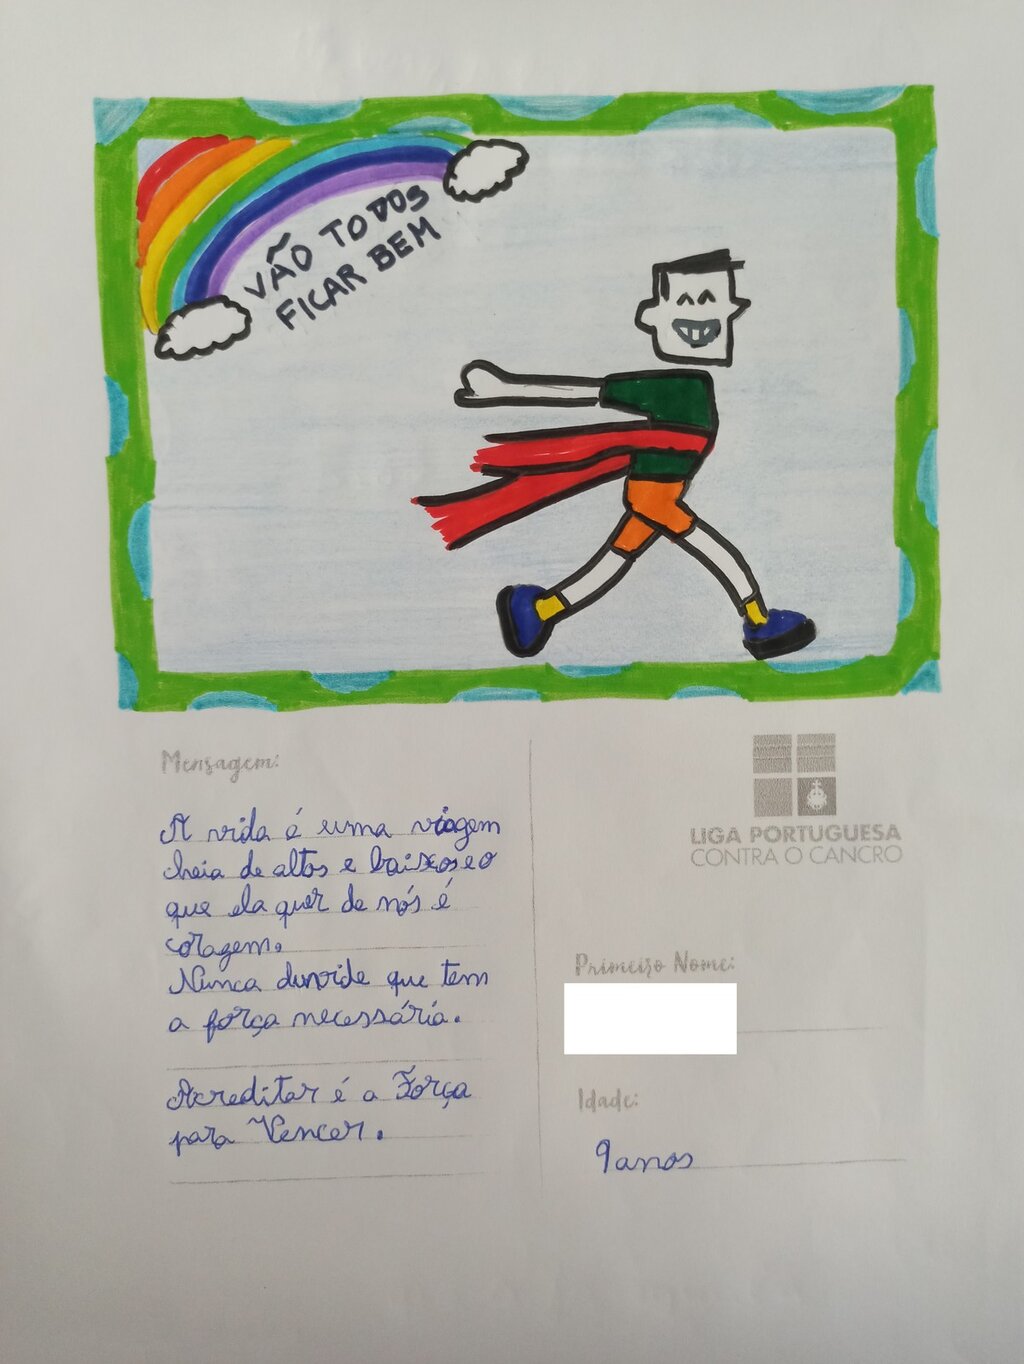 VÃO TODOS
FICAR BEM
Mensagem:
A vida é uma viagem
cheia de altos e baixos e o
que ela quer de nós é
coragem.
Nunca duvide que tem
a força necessária.
Acreditar é a Força
para Vencer.
LIGA PORTUGUESA
CONTRA O CANCRO
Primeiro Nome:
Idade:
9 anos